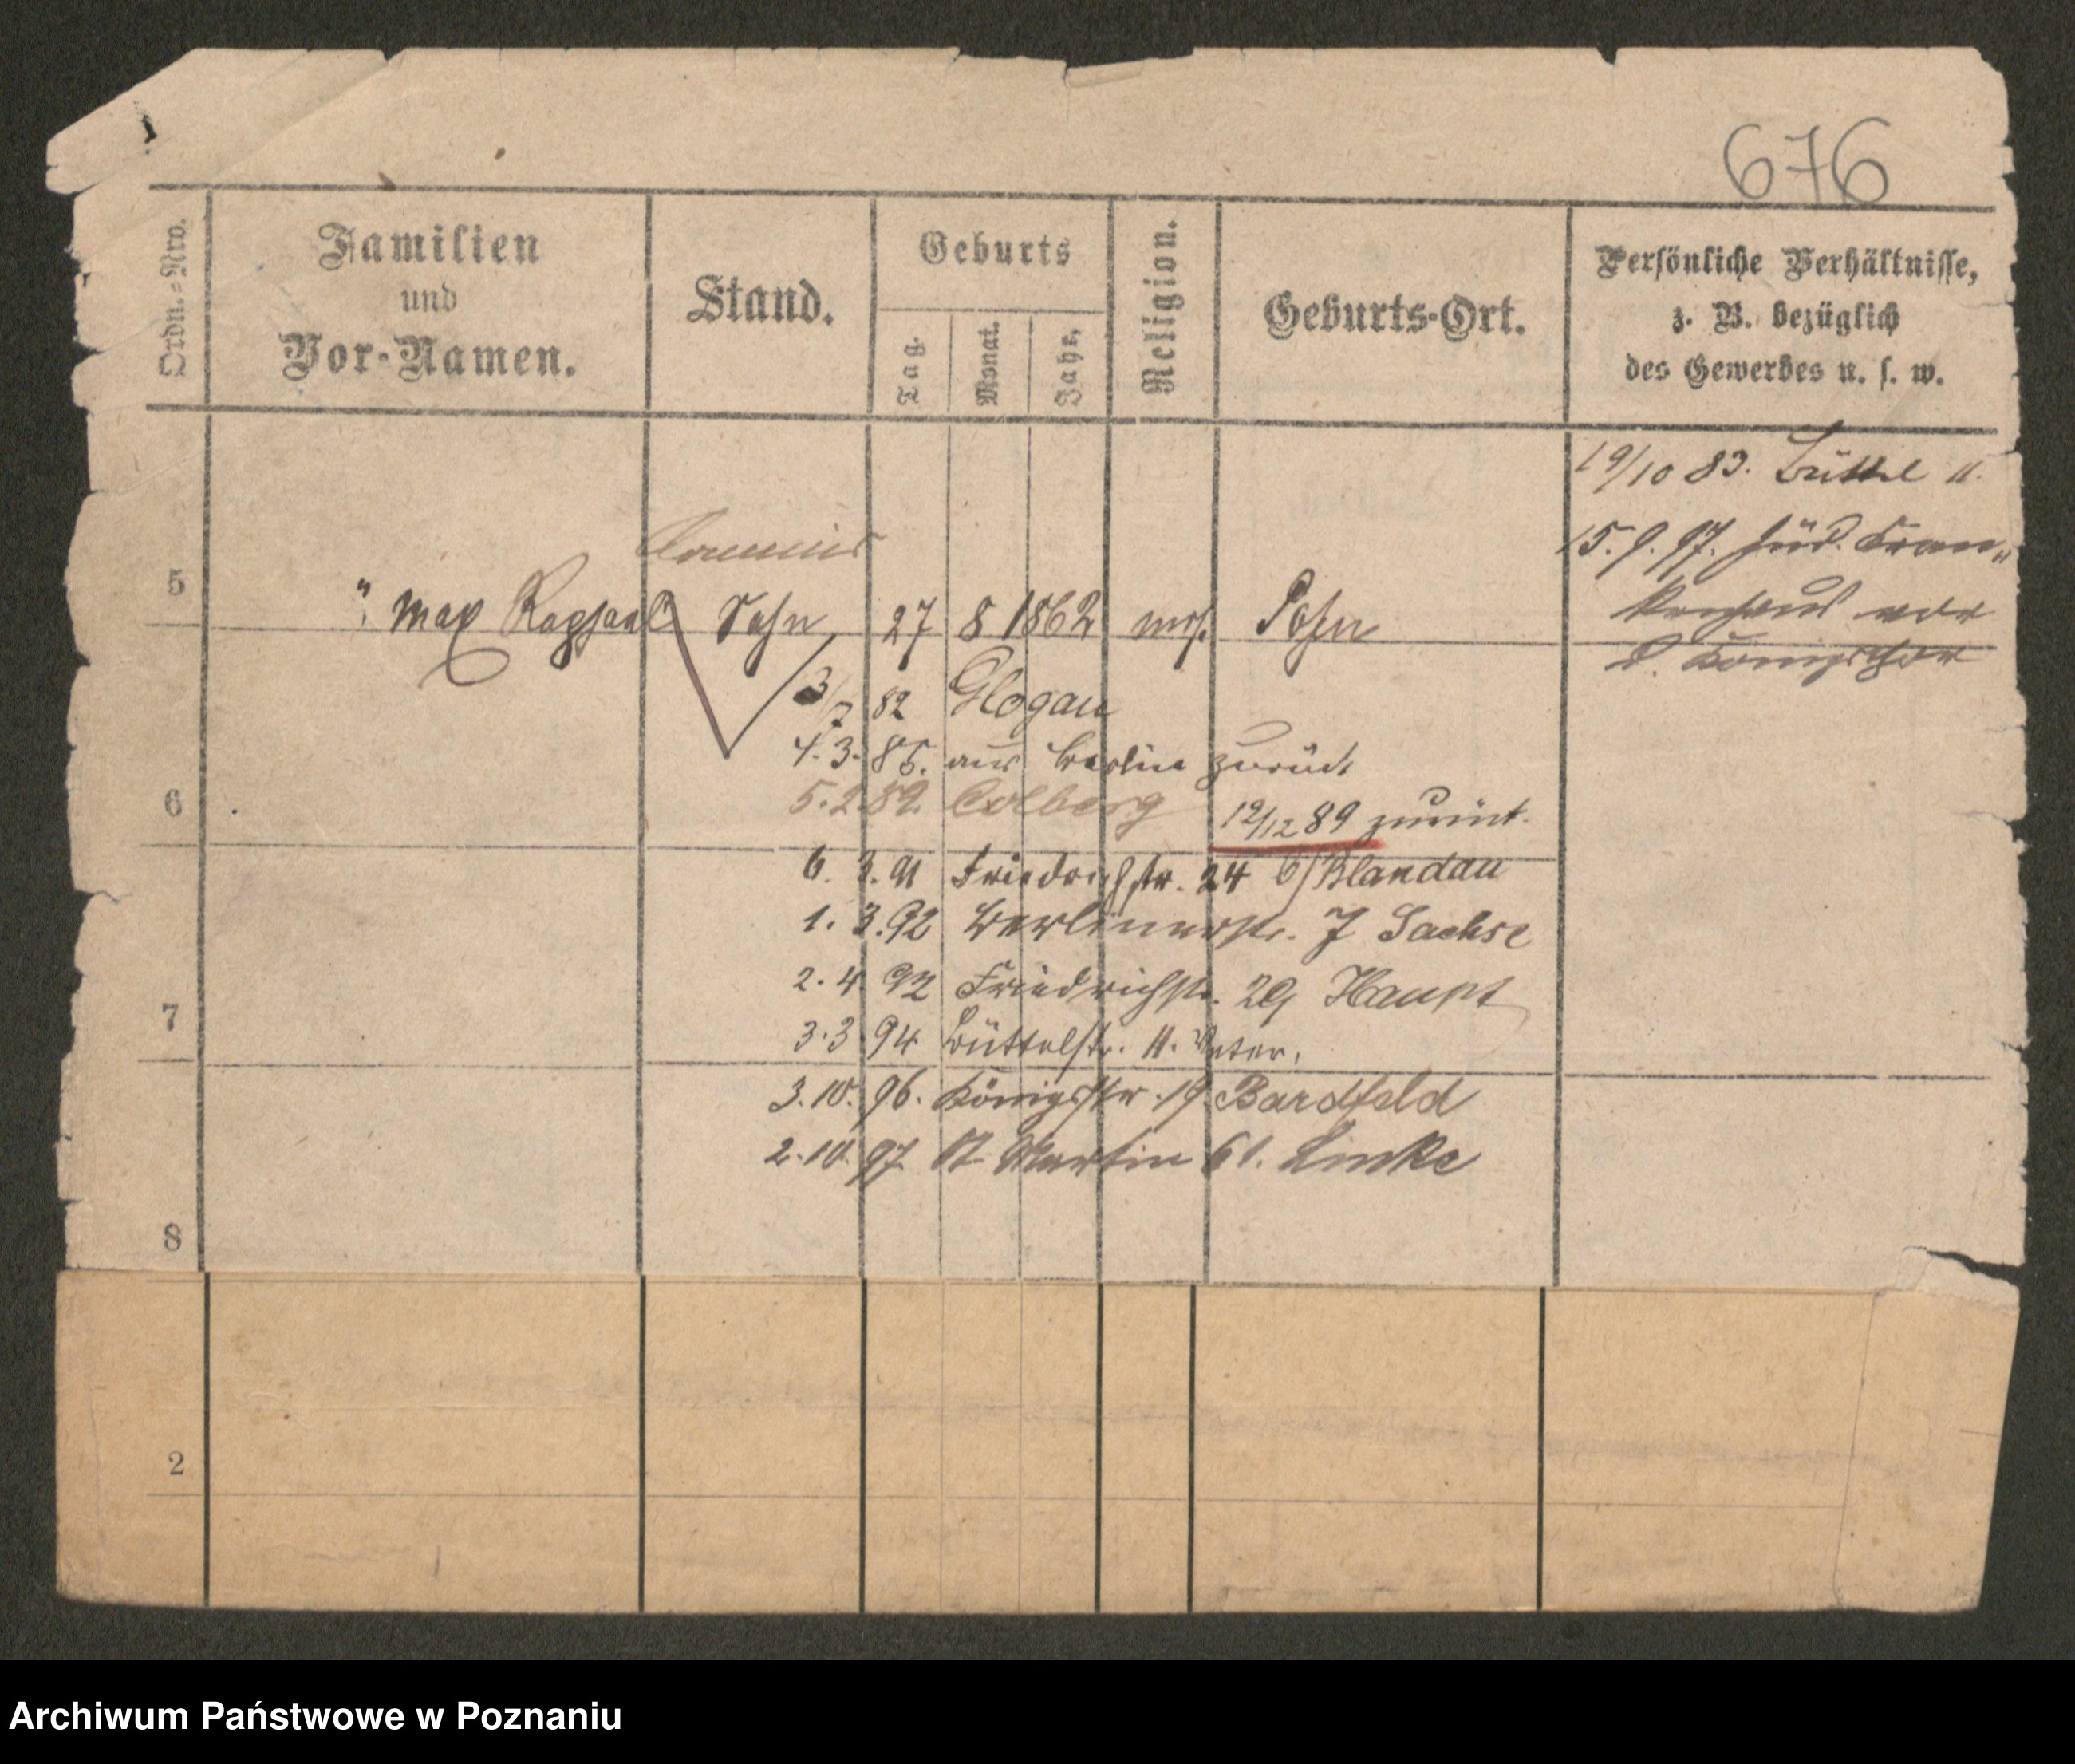 676
Ordn.-Nro.
Familien
und
Vor-Namen.
Stand.
Geburts
Tag.
Monat.
Jahr.
Religion.
Geburts-Ort.
Persönliche Verhältnisse,
z. B. bezüglich
des Gewerbes u. s. w.
19/10 83. Büttel 11.
15. 9. 97. jüd. Kran-
kenhaus vor
d. Königsthor
Commis
5 " Max Raphael Sohn 27 8 1862 mos. Posen
3/7 82 Glogau
4. 3. 85. aus Berlin zurück
6
5. 2 89. Colberg 12/12 89 zurück.
6. 3. 91 Friedrichstr. 24 b/ Blandau
1. 3. 92 Berlinerstr. 7 Sachse
2. 4 92 Friedrichstr. 29 Haupt
7
3. 3 94 Büttelstr. 11. Vater.
3. 10. 96. Königsstr. 19. Bardfeld
2. 10. 97 St Martin 61. Linke
8
2
Archiwum Państwowe w Poznaniu